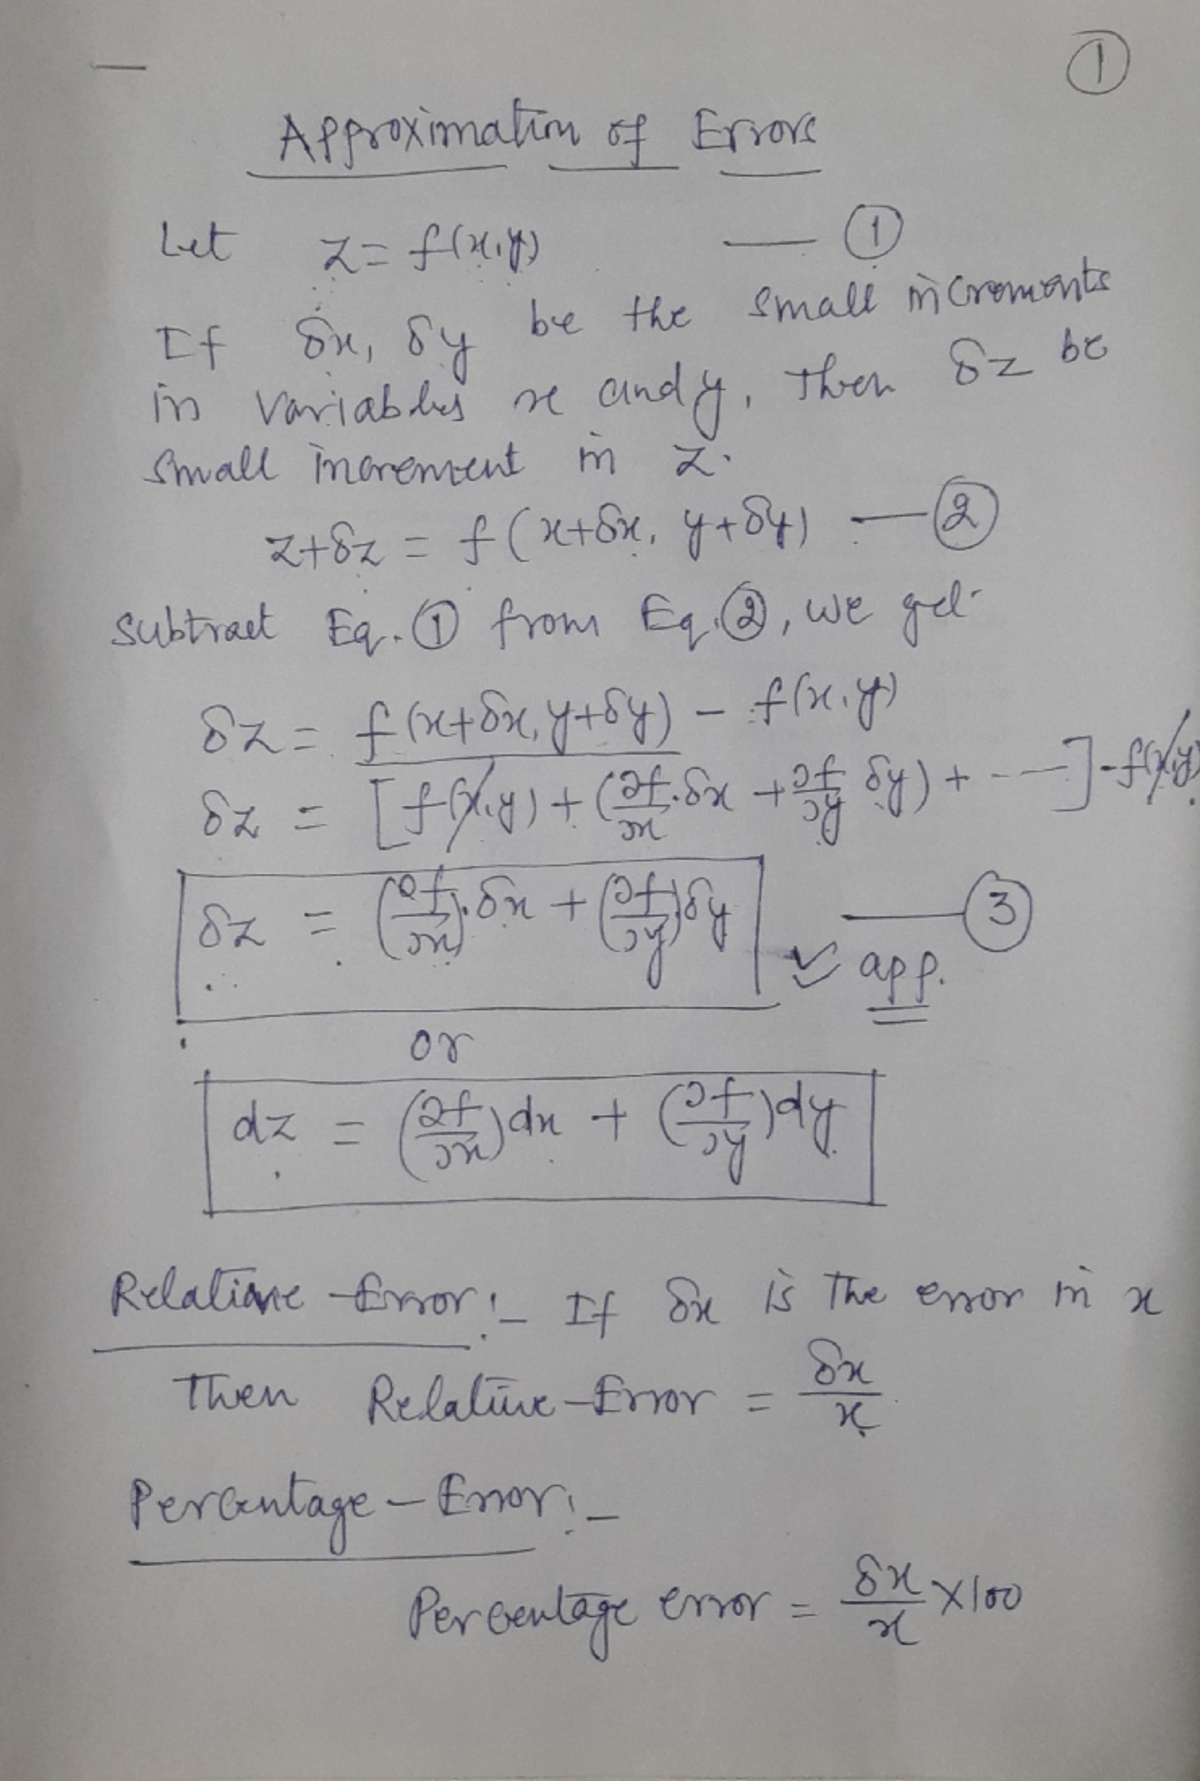 ①
Approximation of Errors
Let z = f(x,y) — ①
If δx, δy be the small increments
in variables x and y, then δz be
small increment in z.
z+δz = f(x+δx, y+δy) — ②
Subtract Eq.① from Eq.②, we get
δz = f(x+δx, y+δy) - f(x,y)
δz = [f(x,y) + (∂f/∂x.δx + ∂f/∂y δy) + ----] - f(x,y)
δz = (∂f/∂x).δx + (∂f/∂y)δy — ③
app.
or
dz = (∂f/∂x)dx + (∂f/∂y)dy
Relative Error:- If δx is the error in x
Then Relative Error = δx/x
Percentage - Error:-
Percentage error = δx/x ×100